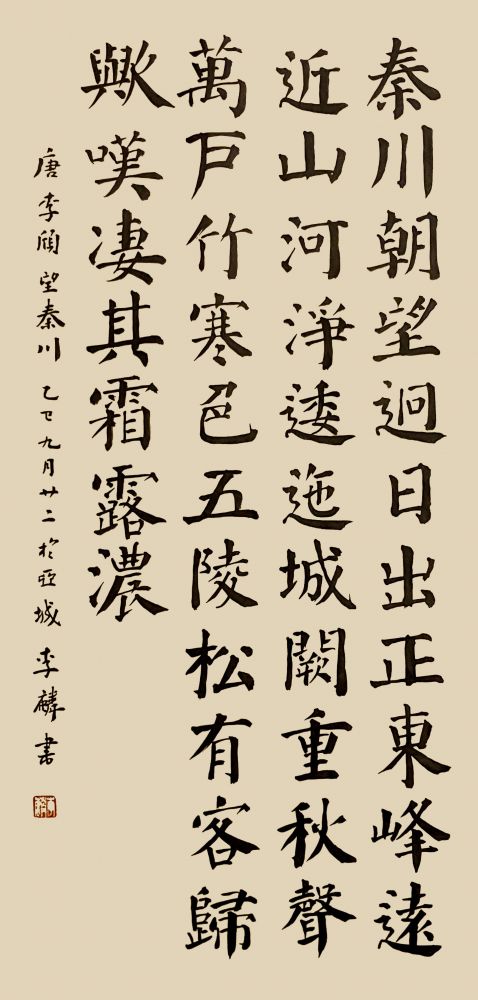 秦川朝望迥日出正東峰遠
近山河淨逶迤城闕重秋聲
萬戶竹寒色五陵松有客歸
歟嘆凄其霜露濃
唐李頎望秦川 乙巳九月廿二於亞城 李麟書